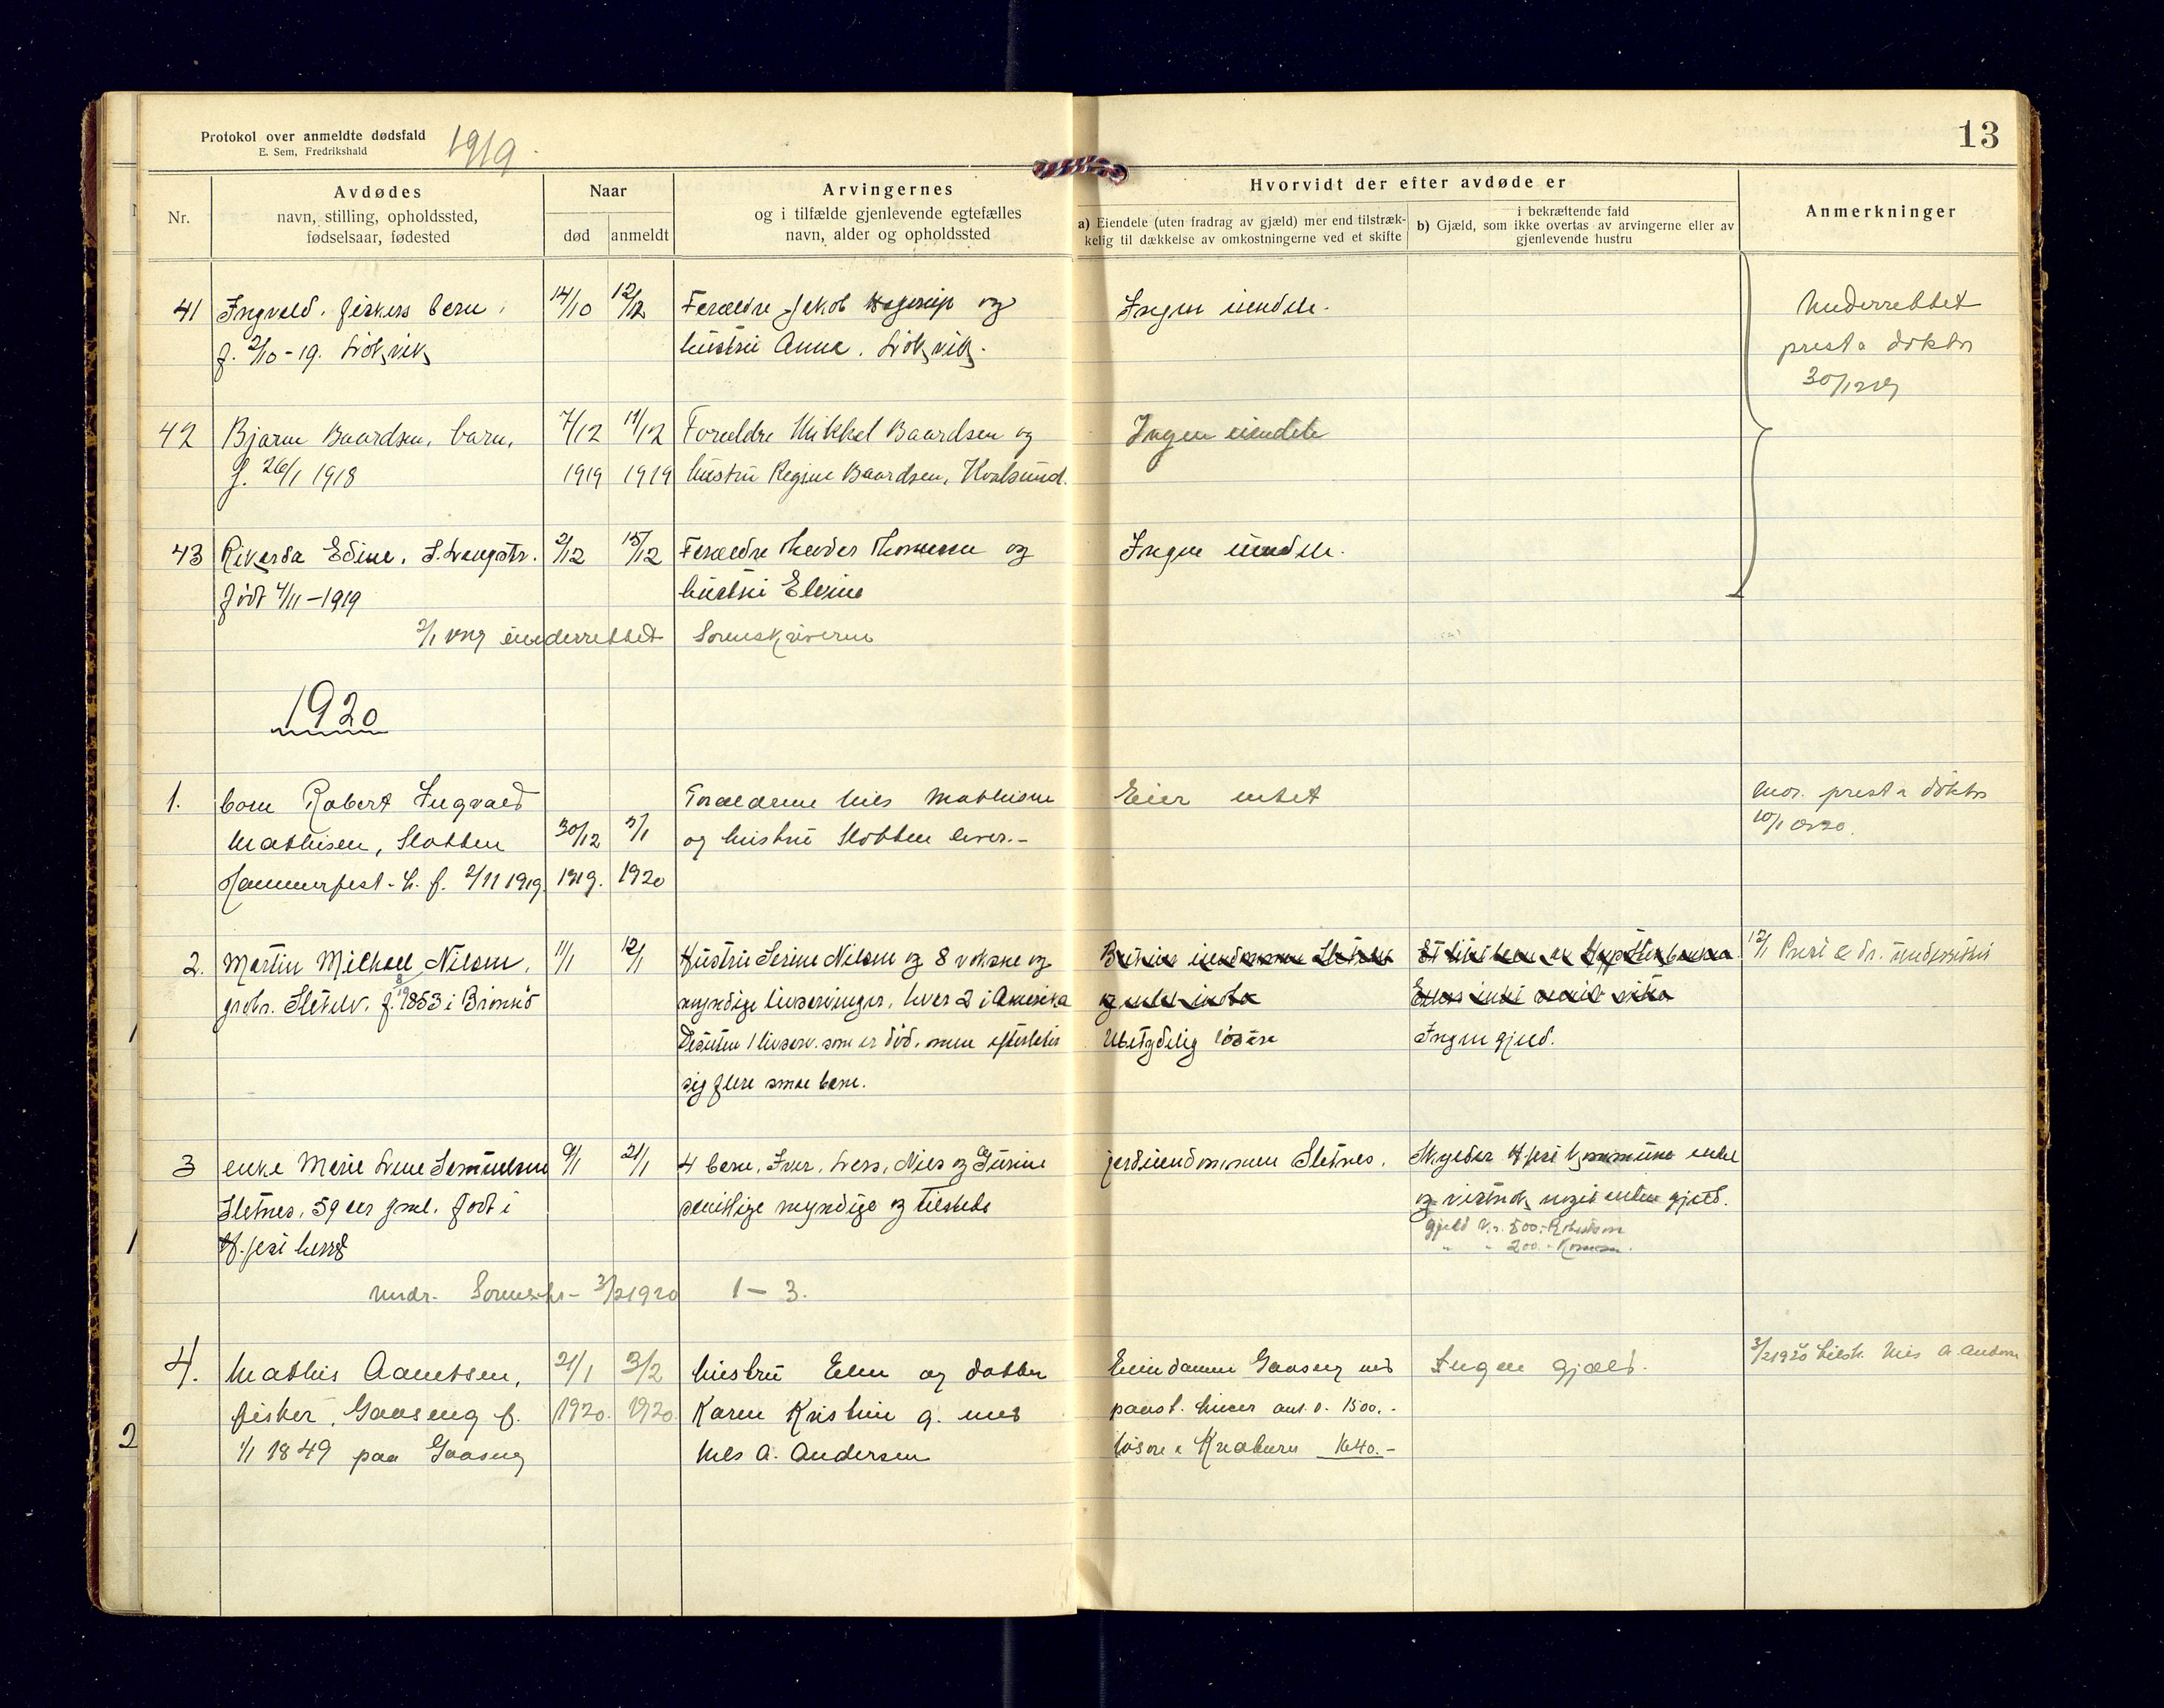 Protokol over anmeldte dødsfald
E. Sem, Fredrikshald
1919.
13
Nr.
Avdødes
navn, stilling, opholdssted,
fødselsaar, fødested
Naar
død
anmeldt
Arvingernes
og i tilfælde gjenlevende egtefælles
navn, alder og opholdssted
Hvorvidt der efter avdøde er
a) Eiendele (uten fradrag av gjæld) mer end tilstræk-
kelig til dækkelse av omkostningerne ved et skifte
i bekræftende fald
b) Gjæld, som ikke overtas av arvingerne eller av
gjenlevende hustru
Anmerkninger
41
Ingvald, fiskers barn,
f. 2/10-19. Lökvik
14/10
12/12
Forældre Jakob og
hustru Anna, Lökvik.
Ingen eiendele.
Underrettet
prest & doktor
42
Bjarne Baardsen, barn,
f. 26/1 1918
7/12
1919
11/12
1919
Forældre Mikkel Baardsen og
hustru Regine Baardsen, Kvalsund.
Ingen eiendele
43
Rikarda Edine, S.
født 4/11-1919
2/12
15/12
Forældre og
hustru
Ingen eiendele.
underrettet Sorenskriveren
1920
1.
barn Robert Ingvald
Mathisen, Slotten
Hammerfest-L. f. 2/11 1919
30/12
1919.
5/1
1920
Forældrene Nils Mathisen
og hustru Slotten lever.-
Eier intet
prest & doktor
2.
Martin Mikael Nilsen,
Sletelv. f. 1853 i Brönnö
11/1
12/1
Hustru Serine Nilsen og 8 voksne og
myndige livsarvinger, hvor 2 i Amerika
Desuten 1 livsarv. som er död, men efterlater
sig flere smaa barn.
Ubetydelig lösöre
Ingen gjeld.
12/1
3
enke Marie Lene Samuelsen
Sletnes, 59 aar gml. født i
H.fest herred
9/1
21/1
4 barn, Iver, Lars, Nils og
samtlige myndige og tilstede
jordeiendommen Sletnes.
Skylder H.fest kommune endel
og vistnok noget anden gjeld.
gjeld kr. 500.-
" " 200.-
undr. 3/2 1920 1-3.
4.
Mathis Aamtsen,
fisker, Gaasnes f.
1/1 1849 paa Gaasnes
21/1
1920.
3/2
1920
hustru Elen og datter
Karen Kristine g. med
Nils A. Andersen
Eiendommen Gaasnes med
paast. huser ans. v. 1500.-
lösöre & Kreaturer 1640.-
Ingen gjæld.
3/2 1920 tilst. Nils A. Andersen